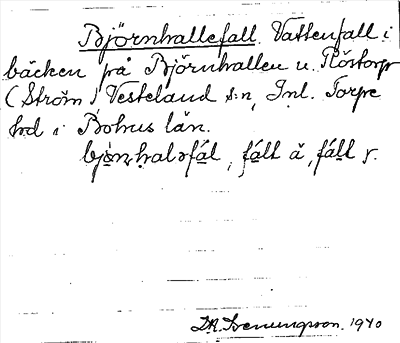 Björnhallefall. Vattenfall i
bäcken på Björnhallen u. Röstorp
(Ström) Vesteland s:n, Inl. Torpe
hd i Bohus län.
bjo̱n,haləfál, fált å, fáll r.
1940